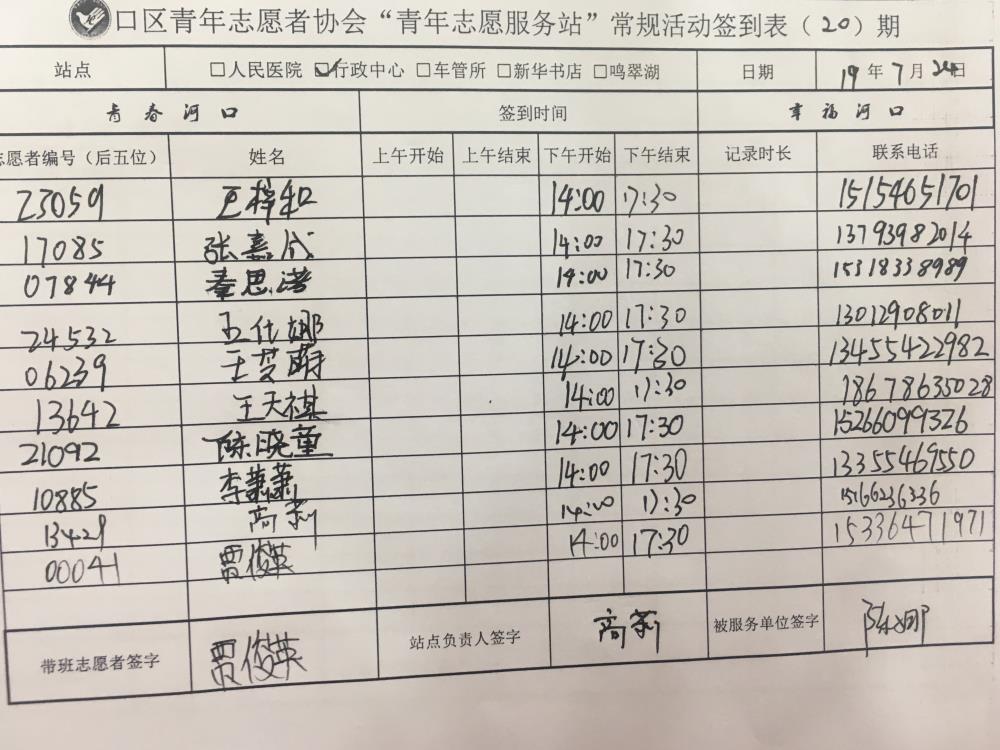 口区青年志愿者协会“青年志愿服务站”常规活动签到表（20）期
站点 □人民医院 ☑行政中心 □车管所 □新华书店 □鸣翠湖 日期 19年7月24日
青春河口 签到时间 幸福河口
志愿者编号（后五位） 姓名 上午开始 上午结束 下午开始 下午结束 记录时长 联系电话
23059 王梓和 14:00 17:30 15154651701
17085 张嘉成 14:00 17:30 13793982014
07844 秦思诺 14:00 17:30 15318338989
24532 王代娜 14:00 17:30 13012908011
06239 王艾萌 14:00 17:30 13455422982
13642 王天祺 14:00 17:30 18678635028
21092 陈晓童 14:00 17:30 15266099326
10885 李潇潇 14:00 17:30 13355469550
13429 高莉 14:00 17:30
00041 贾俊英 14:00 17:30 15336471971
带班志愿者签字 贾俊英 站点负责人签字 高莉 被服务单位签字